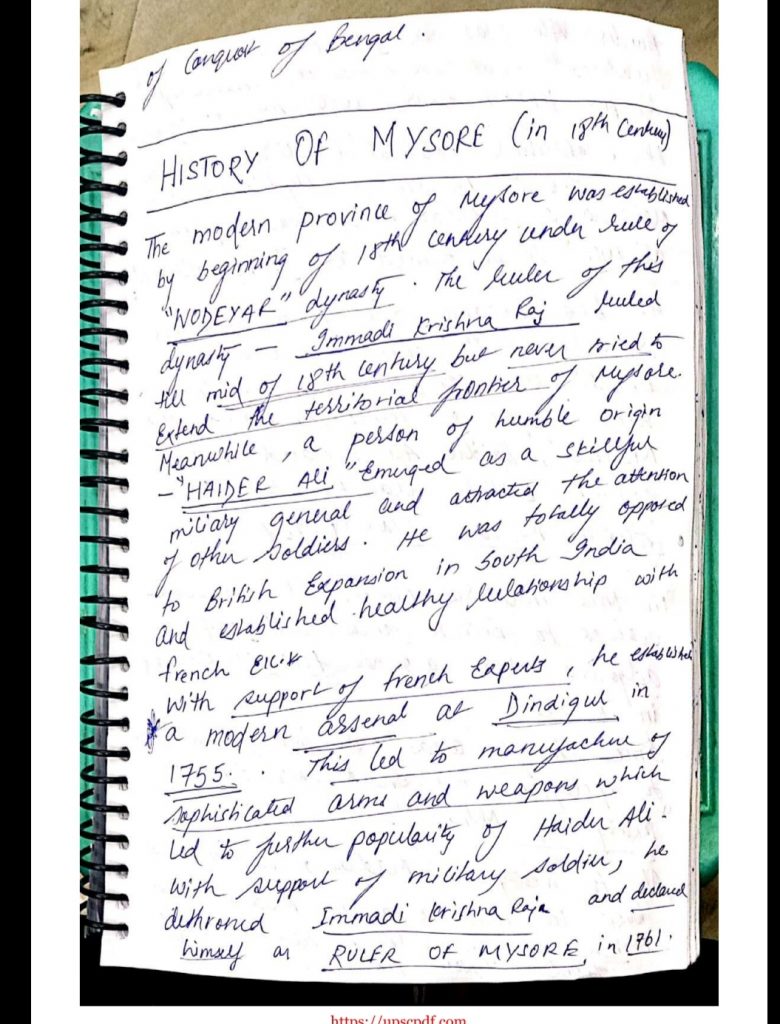 of Conquest of Bengal.
HISTORY OF MYSORE (in 18th Century)
The modern province of Mysore was established
by beginning of 18th century under rule of
"WODEYAR" dynasty. The ruler of this
dynasty - Immadi Krishna Raj ruled
till mid of 18th century but never tried to
Extend the territorial frontier of Mysore.
Meanwhile, a person of humble origin
- "HAIDER Ali" Emerged as a skillful
miliary general and attracted the attention
of other soldiers. He was totally opposed
to British Expansion in South India
and established healthy relationship with
french
With support of french Experts, he established
a modern arsenal at Dindigul in
1755. This led to manufacture of
sophisticated arms and weapons which
led to further popularity of Haider Ali.
with support of military soldier, he
dethroned Immadi Krishna Raja and declared
himself as RULER OF MYSORE, in 1761.
https://upscpdf.com